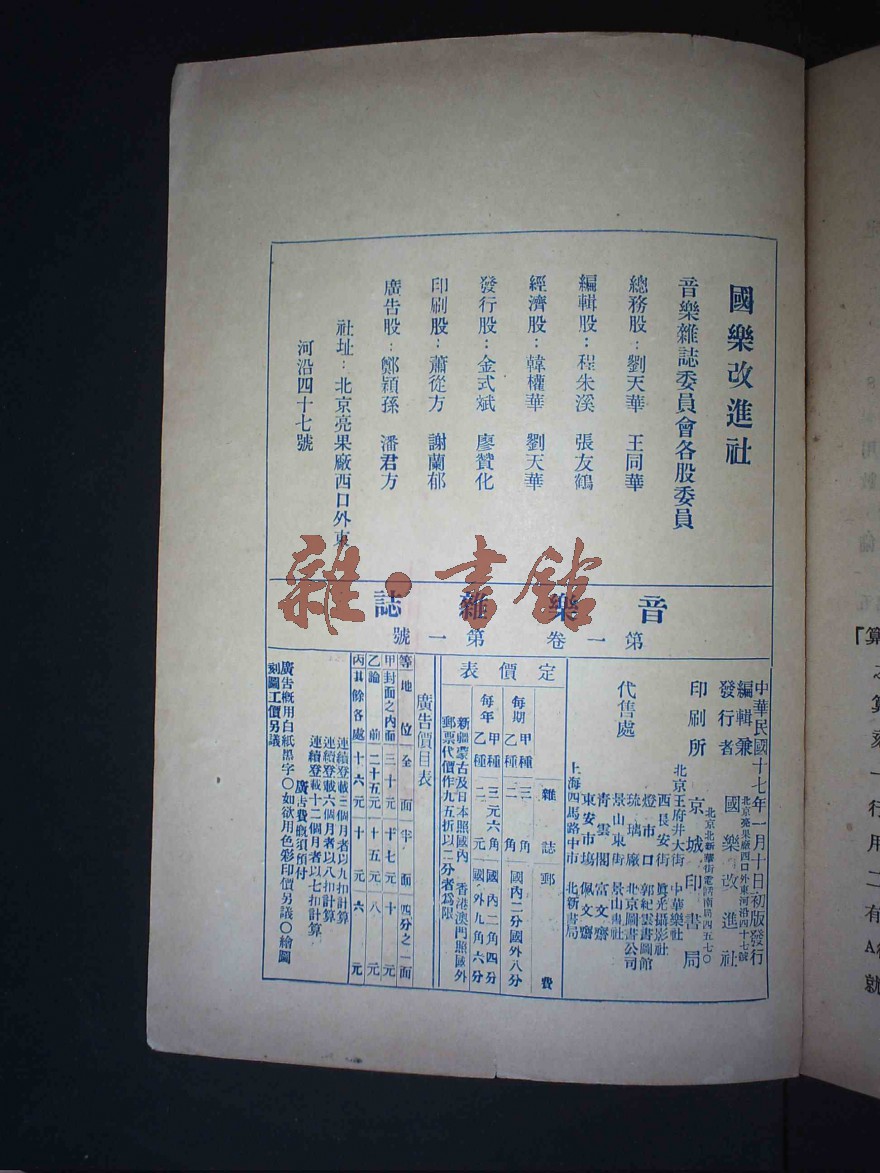 國樂改進社
音樂雜誌委員會各股委員
總務股：劉天華　王同華
編輯股：程朱溪　張友鶴
經濟股：韓權華　劉天華
發行股：金式斌　廖贊化
印刷股：蕭從方　謝蘭郁
廣告股：鄭穎孫　潘君方
社址：北京亮果廠西口外東
河沿四十七號
雜·書館
音樂雜誌
第一卷　第一號
中華民國十七年一月十日初版發行
編輯兼
發行者　國樂改進社
北京亮果廠西口外東河沿四十七號
印刷所　京城印書局
北京北新華街電話南局四五七〇
代售處
北京王府井大街　中華樂社
西長安街　眞光攝影社
燈市口　郭紀雲書圖館
琉璃廠　北京圖書公司
景山東街　景山書社
青雲閣　富文齋
東安市場　佩文齋
上海四馬路中市　北新書局
定價表
雜誌　郵費
每期　甲種　三角
乙種　二角
國內二分國外八分
每年　甲種　三元六角　國內二角四分
乙種　二元　國外九角六分
新疆蒙古及日本照國內　香港澳門照國外
郵票代價作九五折以二分者爲限
廣告價目表
等　地位　全面　半面　四分之一面
甲　封面之內面　三十元　十七元　十元
乙　論前　二十五元　十五元　八元
丙　其餘各處　十六元　十元　六元
連續登載三個月者以九扣計算
連續登載六個月者以八扣計算
連續登載十二個月者以七扣計算
廣告費概須預付
廣告概用白紙黑字〇如欲用色彩印價另議〇繪圖
刻圖工價另議
「算
算
一
行
用
二
有
就